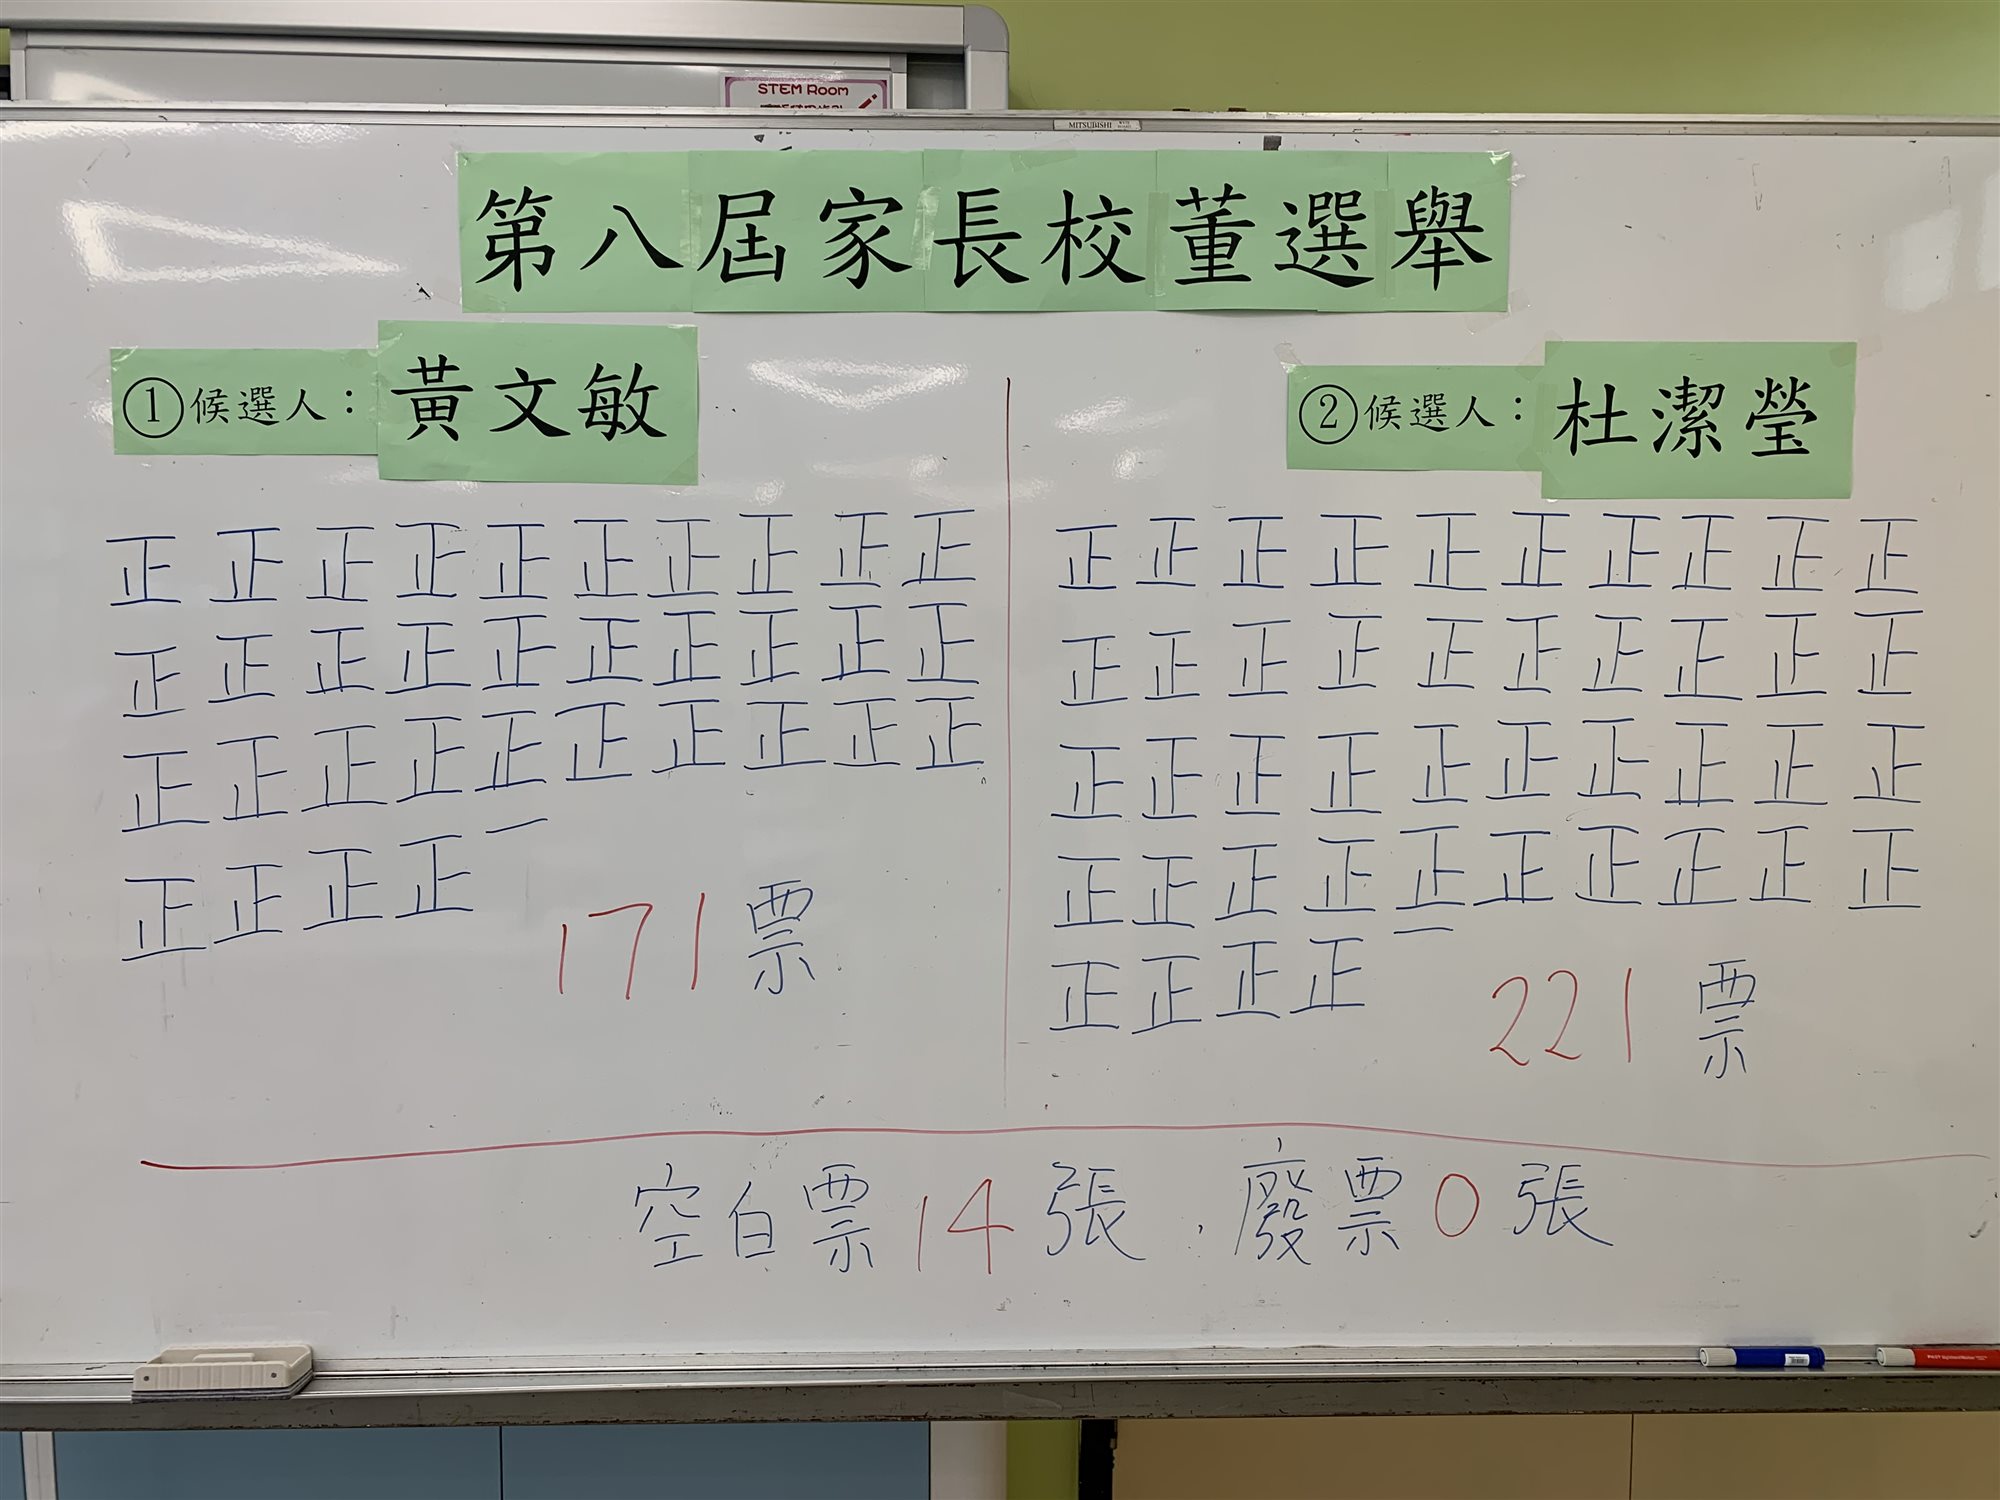 STEM Room
MITSUBISHI
第八屆家長校董選舉
①候選人：黃文敏
正正正正正正正正正正
正正正正正正正正正正
正正正正正正正正正正
正正正正一
171票
②候選人：杜潔瑩
正正正正正正正正正正
正正正正正正正正正正
正正正正正正正正正正
正正正正正正正正正正
正正正正一
221票
空白票14張，廢票0張